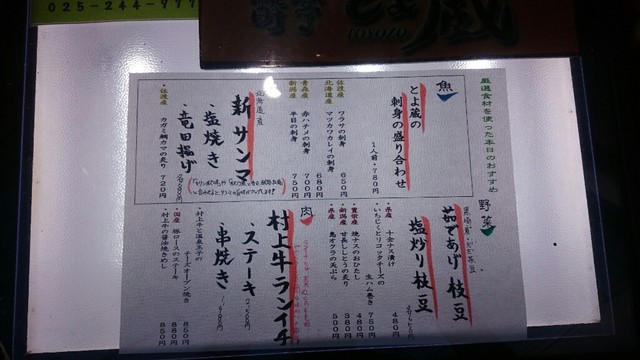 025-244-777
とよ蔵
TOYOZO
厳選食材を使った本日のおすすめ
魚
とよ蔵の
刺身の盛り合わせ
1人前・780円
佐渡産 ワラサの刺身 650円
北海道産 マツカワカレイの刺身 680円
青森産 赤ハチメの刺身 700円
新潟産 平目の刺身 750円
北海道産
新サンマ
・塩焼き
・竜田揚げ
・佐渡産 カガミ鯛カマの炙り 720円
野菜
茹であげ枝豆
塩炒り枝豆
・県産 十全ナス漬け 480円
・いちじくとリコッタチーズの
生ハム巻き 750円
・焼ナスのおひたし 480円
・新潟産 甘長しとうの炙り 380円
・県産 島オクラの天ぷら 500円
肉
村上牛ランイチ
ステーキ
串焼き
・村上牛と温泉玉子の
チーズオーブン焼き 850円
・国産 豚ロースのステーキ 880円
・村上牛の醤油焼きめし 850円